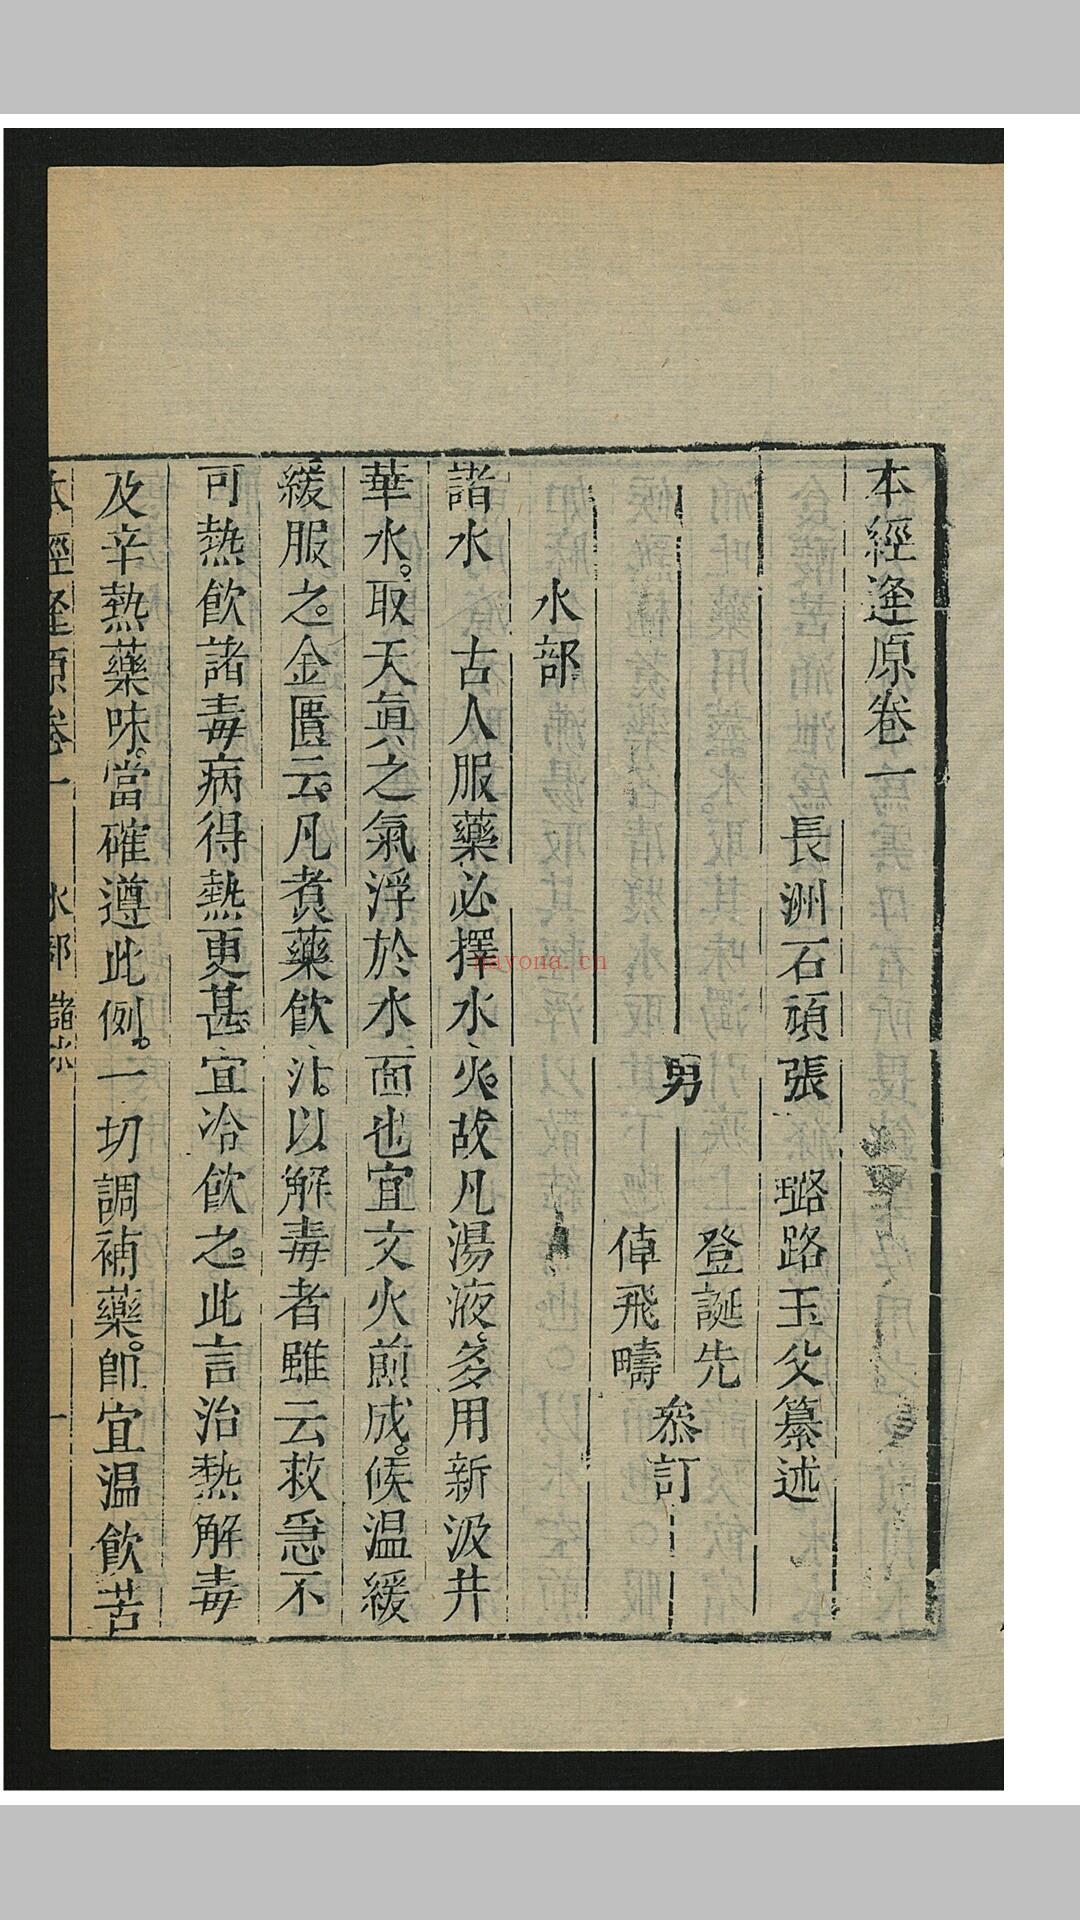 本經逢原卷一
長洲石頑張　璐路玉父纂述
男
登誕先
倬飛疇
叅訂
水部
諸水　古人服藥必擇水火。故凡湯液多用新汲井
華水。取天眞之氣浮於水面也宜文火煎成。候温緩
緩服之。金匱云。凡煑藥飲汁。以解毒者雖云救急不
可熱飲諸毒病得熱更甚宜冷飲之。此言治熱解毒
及辛熱藥味。當確遵此例。一切調補藥。卽宜温飲苦
本經逢原卷一　水部　諸水　一
nayona.cn